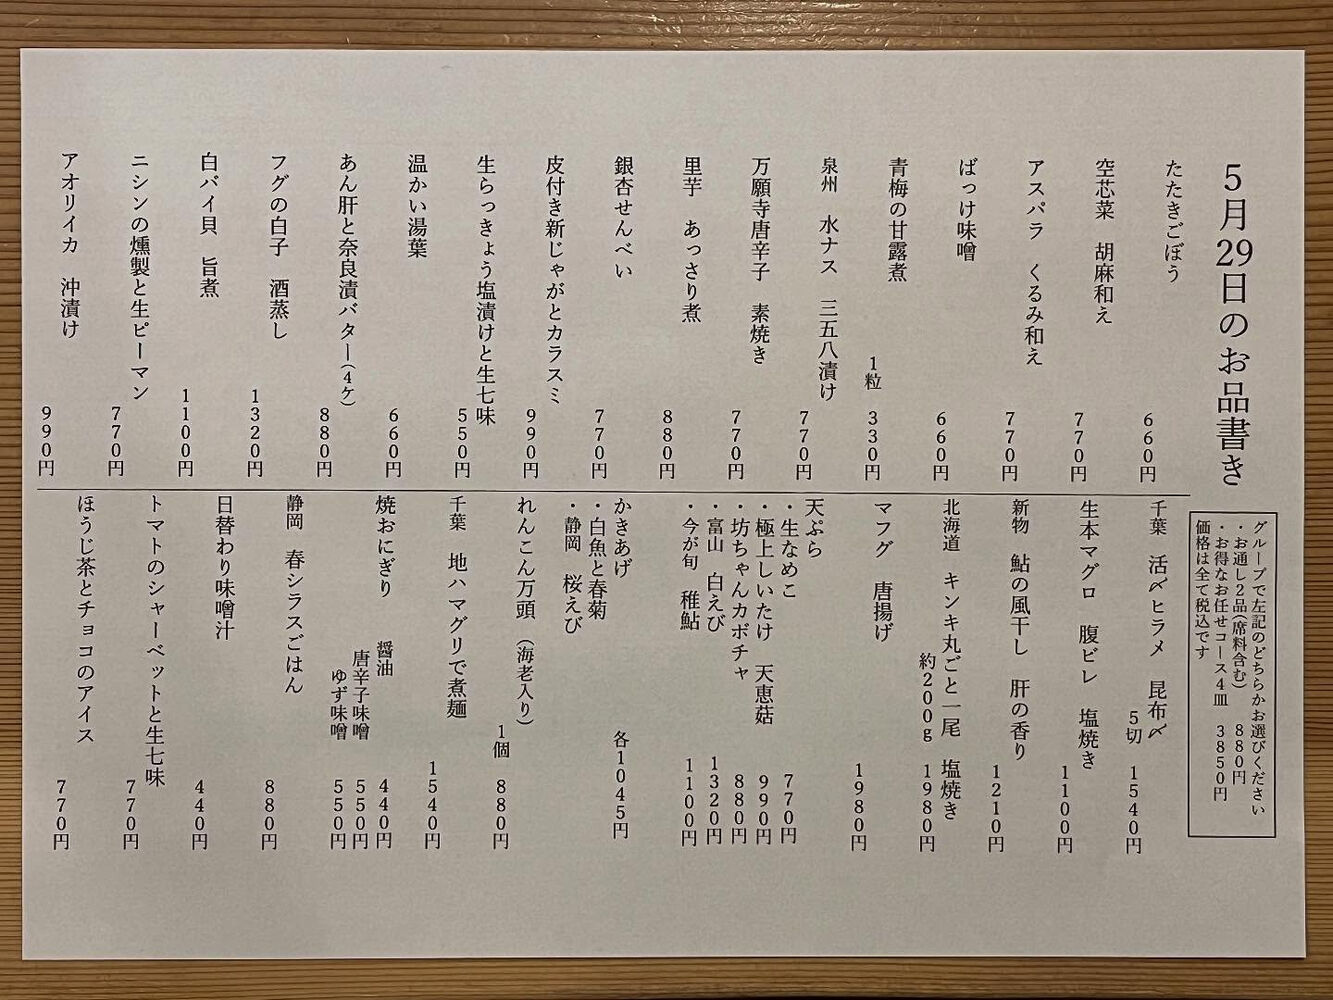 5月29日のお品書き
グループで左記のどちらかお選びください
・お通し2品(席料含む) 880円
・お得なお任せコース4皿 3850円
価格は全て税込です
たたきごぼう 660円
空芯菜 胡麻和え 770円
アスパラ くるみ和え 770円
ばっけ味噌 660円
青梅の甘露煮 1粒 330円
泉州 水ナス 三五八漬け 770円
万願寺唐辛子 素焼き 770円
里芋 あっさり煮 880円
銀杏せんべい 770円
皮付き新じゃがとカラスミ 990円
生らっきょう塩漬けと生七味 550円
温かい湯葉 660円
あん肝と奈良漬バター(4ケ) 880円
フグの白子 酒蒸し 1320円
白バイ貝 旨煮 1100円
ニシンの燻製と生ピーマン 770円
アオリイカ 沖漬け 990円
千葉 活〆ヒラメ 昆布〆 5切 1540円
生本マグロ 腹ビレ 塩焼き 1100円
新物 鮎の風干し 肝の香り 1210円
北海道 キンキ丸ごと一尾 塩焼き
約200g 1980円
マフグ 唐揚げ 1980円
天ぷら
・生なめこ 770円
・極上しいたけ 天恵菇 990円
・坊ちゃんカボチャ 880円
・富山 白えび 1320円
・今が旬 稚鮎 1100円
かきあげ 各1045円
・白魚と春菊
・静岡 桜えび
れんこん万頭 (海老入り) 1個 880円
千葉 地ハマグリで煮麺 1540円
焼おにぎり 醤油 440円
唐辛子味噌 550円
ゆず味噌 550円
静岡 春シラスごはん 880円
日替わり味噌汁 440円
トマトのシャーベットと生七味 770円
ほうじ茶とチョコのアイス 770円